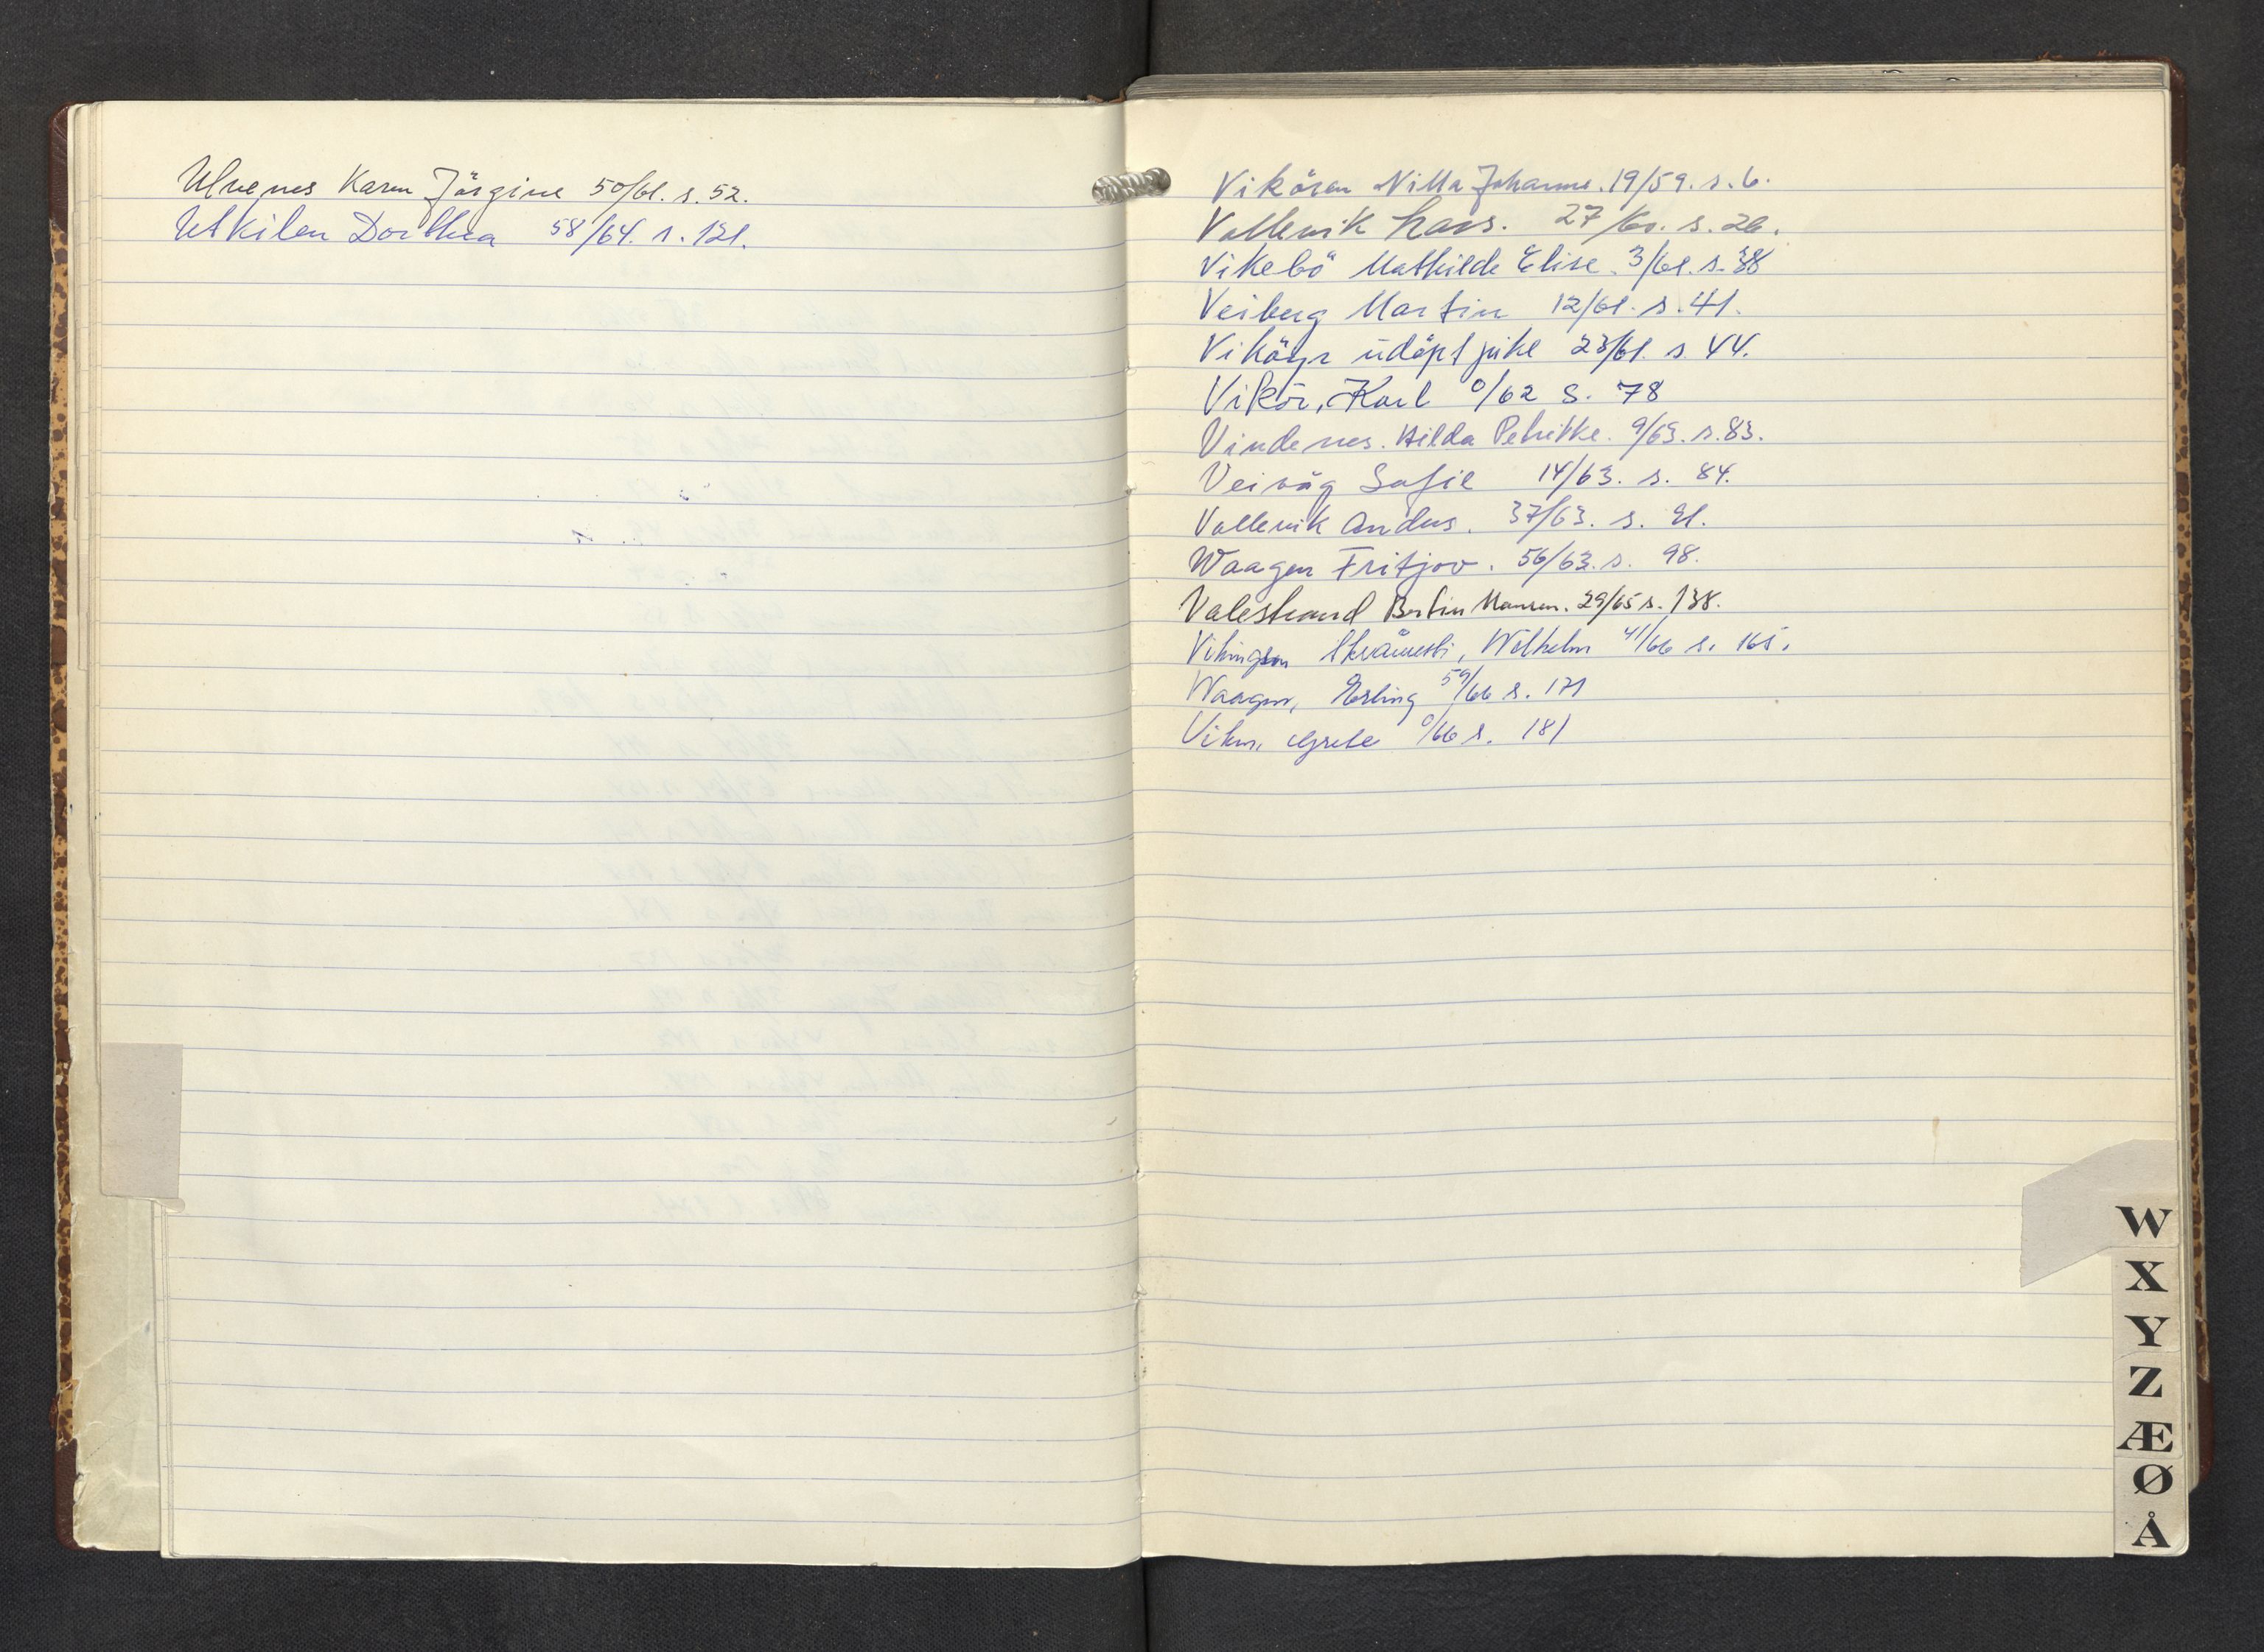 Ulvenes Karen Jörgine 50/61. s. 52.
Utkilen Dorthea 58/64. s. 121.
Vikören Nilla Johanne. 19/59. s. 6.
Vallevik Lars. 27/60. s. 26.
Vikebö Mathilde Elise. 3/61. s. 38
Veiberg Martin 12/61. s. 41.
Viköyr udöpt pike 23/61. s. 44.
Vikör, Karl 0/62 S. 78
Vindenes. Hilda Petrikke. 9/63. s. 83.
Veivåg Sofie 14/63. s. 84.
Vallevik Andreas. 37/63. s. 91.
Waagen Fritjov. 56/63. s. 98.
Valestrand Bertin Monsen. 29/65 s. 138.
Vikingsen Wilhelm 41/66 s. 165.
Waagen, Erling 59/66 s. 171
Viken, Grete 0/66 s. 181
W
X
Y
Z
Æ
Ø
Å